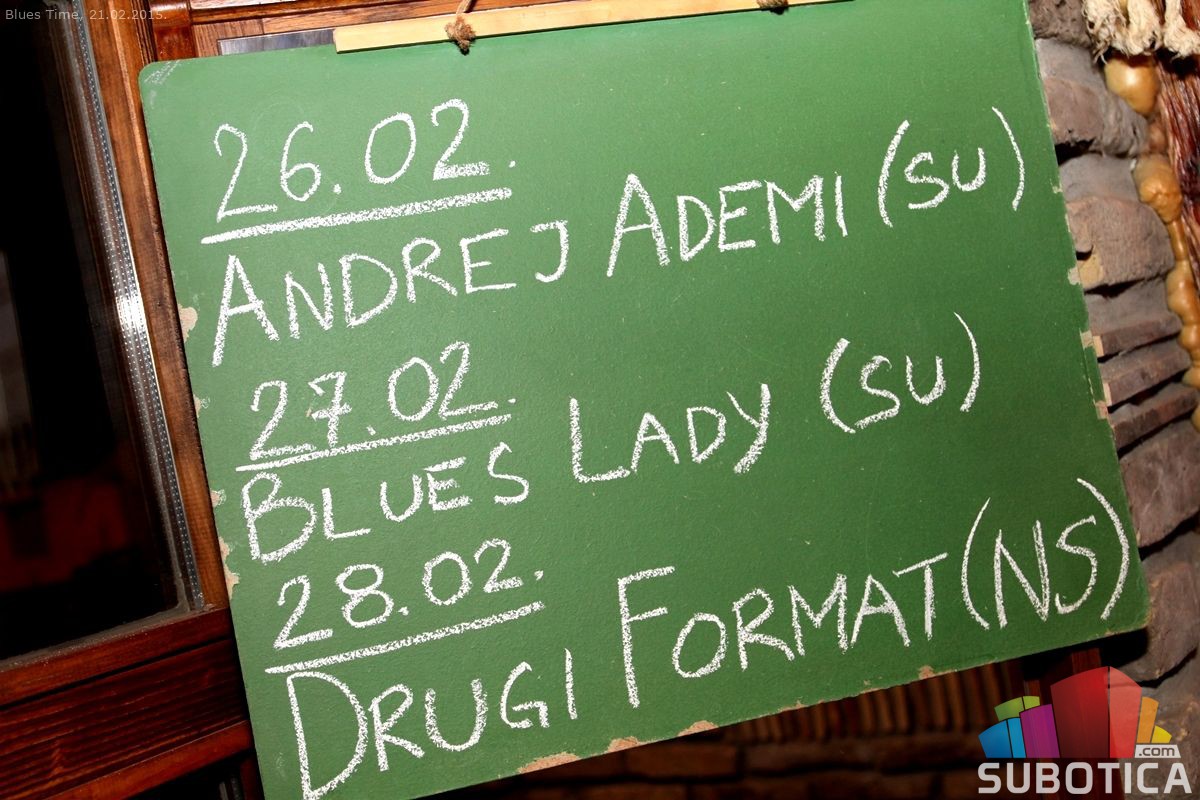 Blues Time, 21.02.2015.
26.02.
ANDREJ ADEMI (SU)
27.02.
BLUES LADY (SU)
28.02.
DRUGI FORMAT (NS)
.com
SUBOTICA